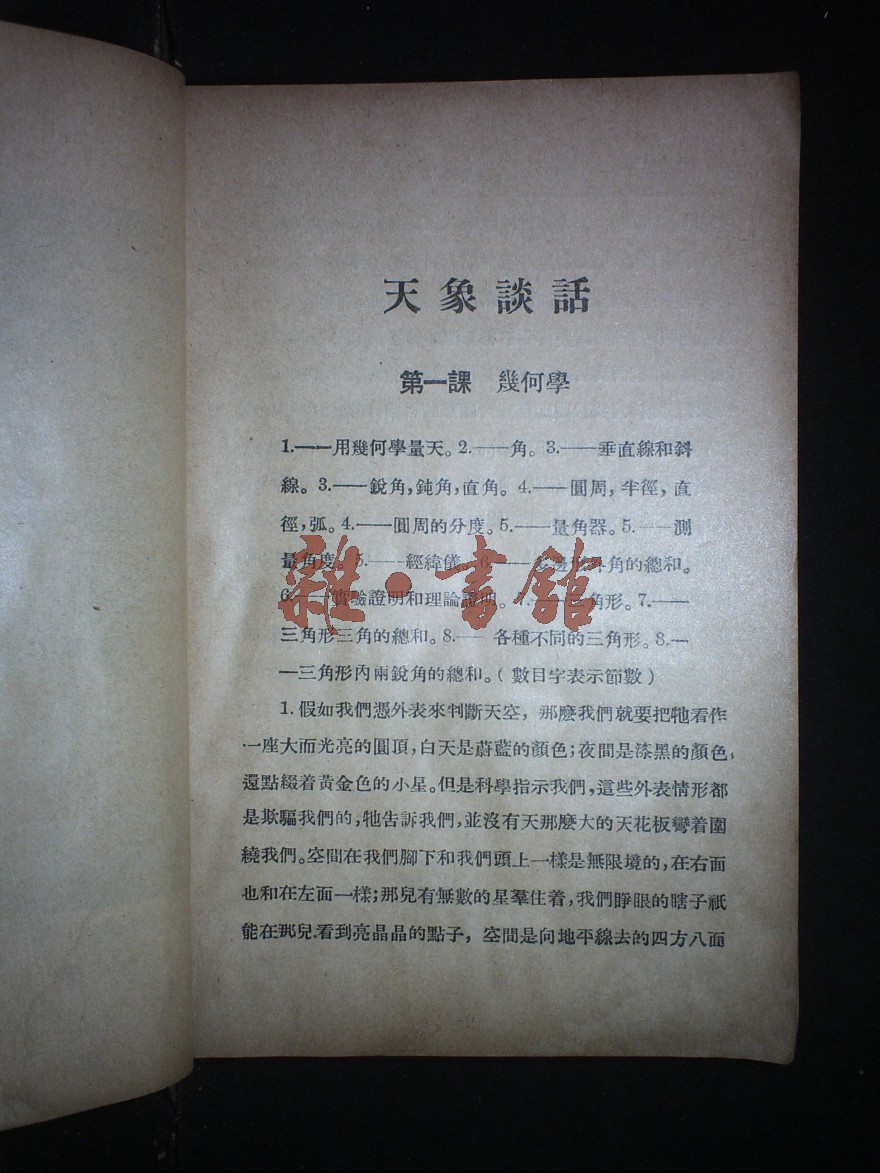 天象談話
第一課 幾何學
1.——用幾何學量天。2.——角。3.——垂直線和斜
線。3.——銳角,鈍角,直角。4.——圓周,半徑,直
徑,弧。4.——圓周的分度。5.——量角器。5.——測
量角度。5.——經緯儀。6.——多邊形外角的總和。
6.——實驗證明和理論證明。7.——三角形。7.——
三角形三角的總和。8.——各種不同的三角形。8.—
—三角形內兩銳角的總和。(數目字表示節數)
雜·書館
1. 假如我們憑外表來判斷天空,那麼我們就要把牠看作
一座大而光亮的圓頂,白天是蔚藍的顏色;夜間是漆黑的顏色,
還點綴着黃金色的小星。但是科學指示我們,這些外表情形都
是欺騙我們的,牠告訴我們,並沒有天那麼大的天花板彎着圍
繞我們。空間在我們腳下和我們頭上一樣是無限境的,在右面
也和在左面一樣;那兒有無數的星羣住着,我們睜眼的瞎子祇
能在那兒看到亮晶晶的點子,空間是向地平線去的四方八面